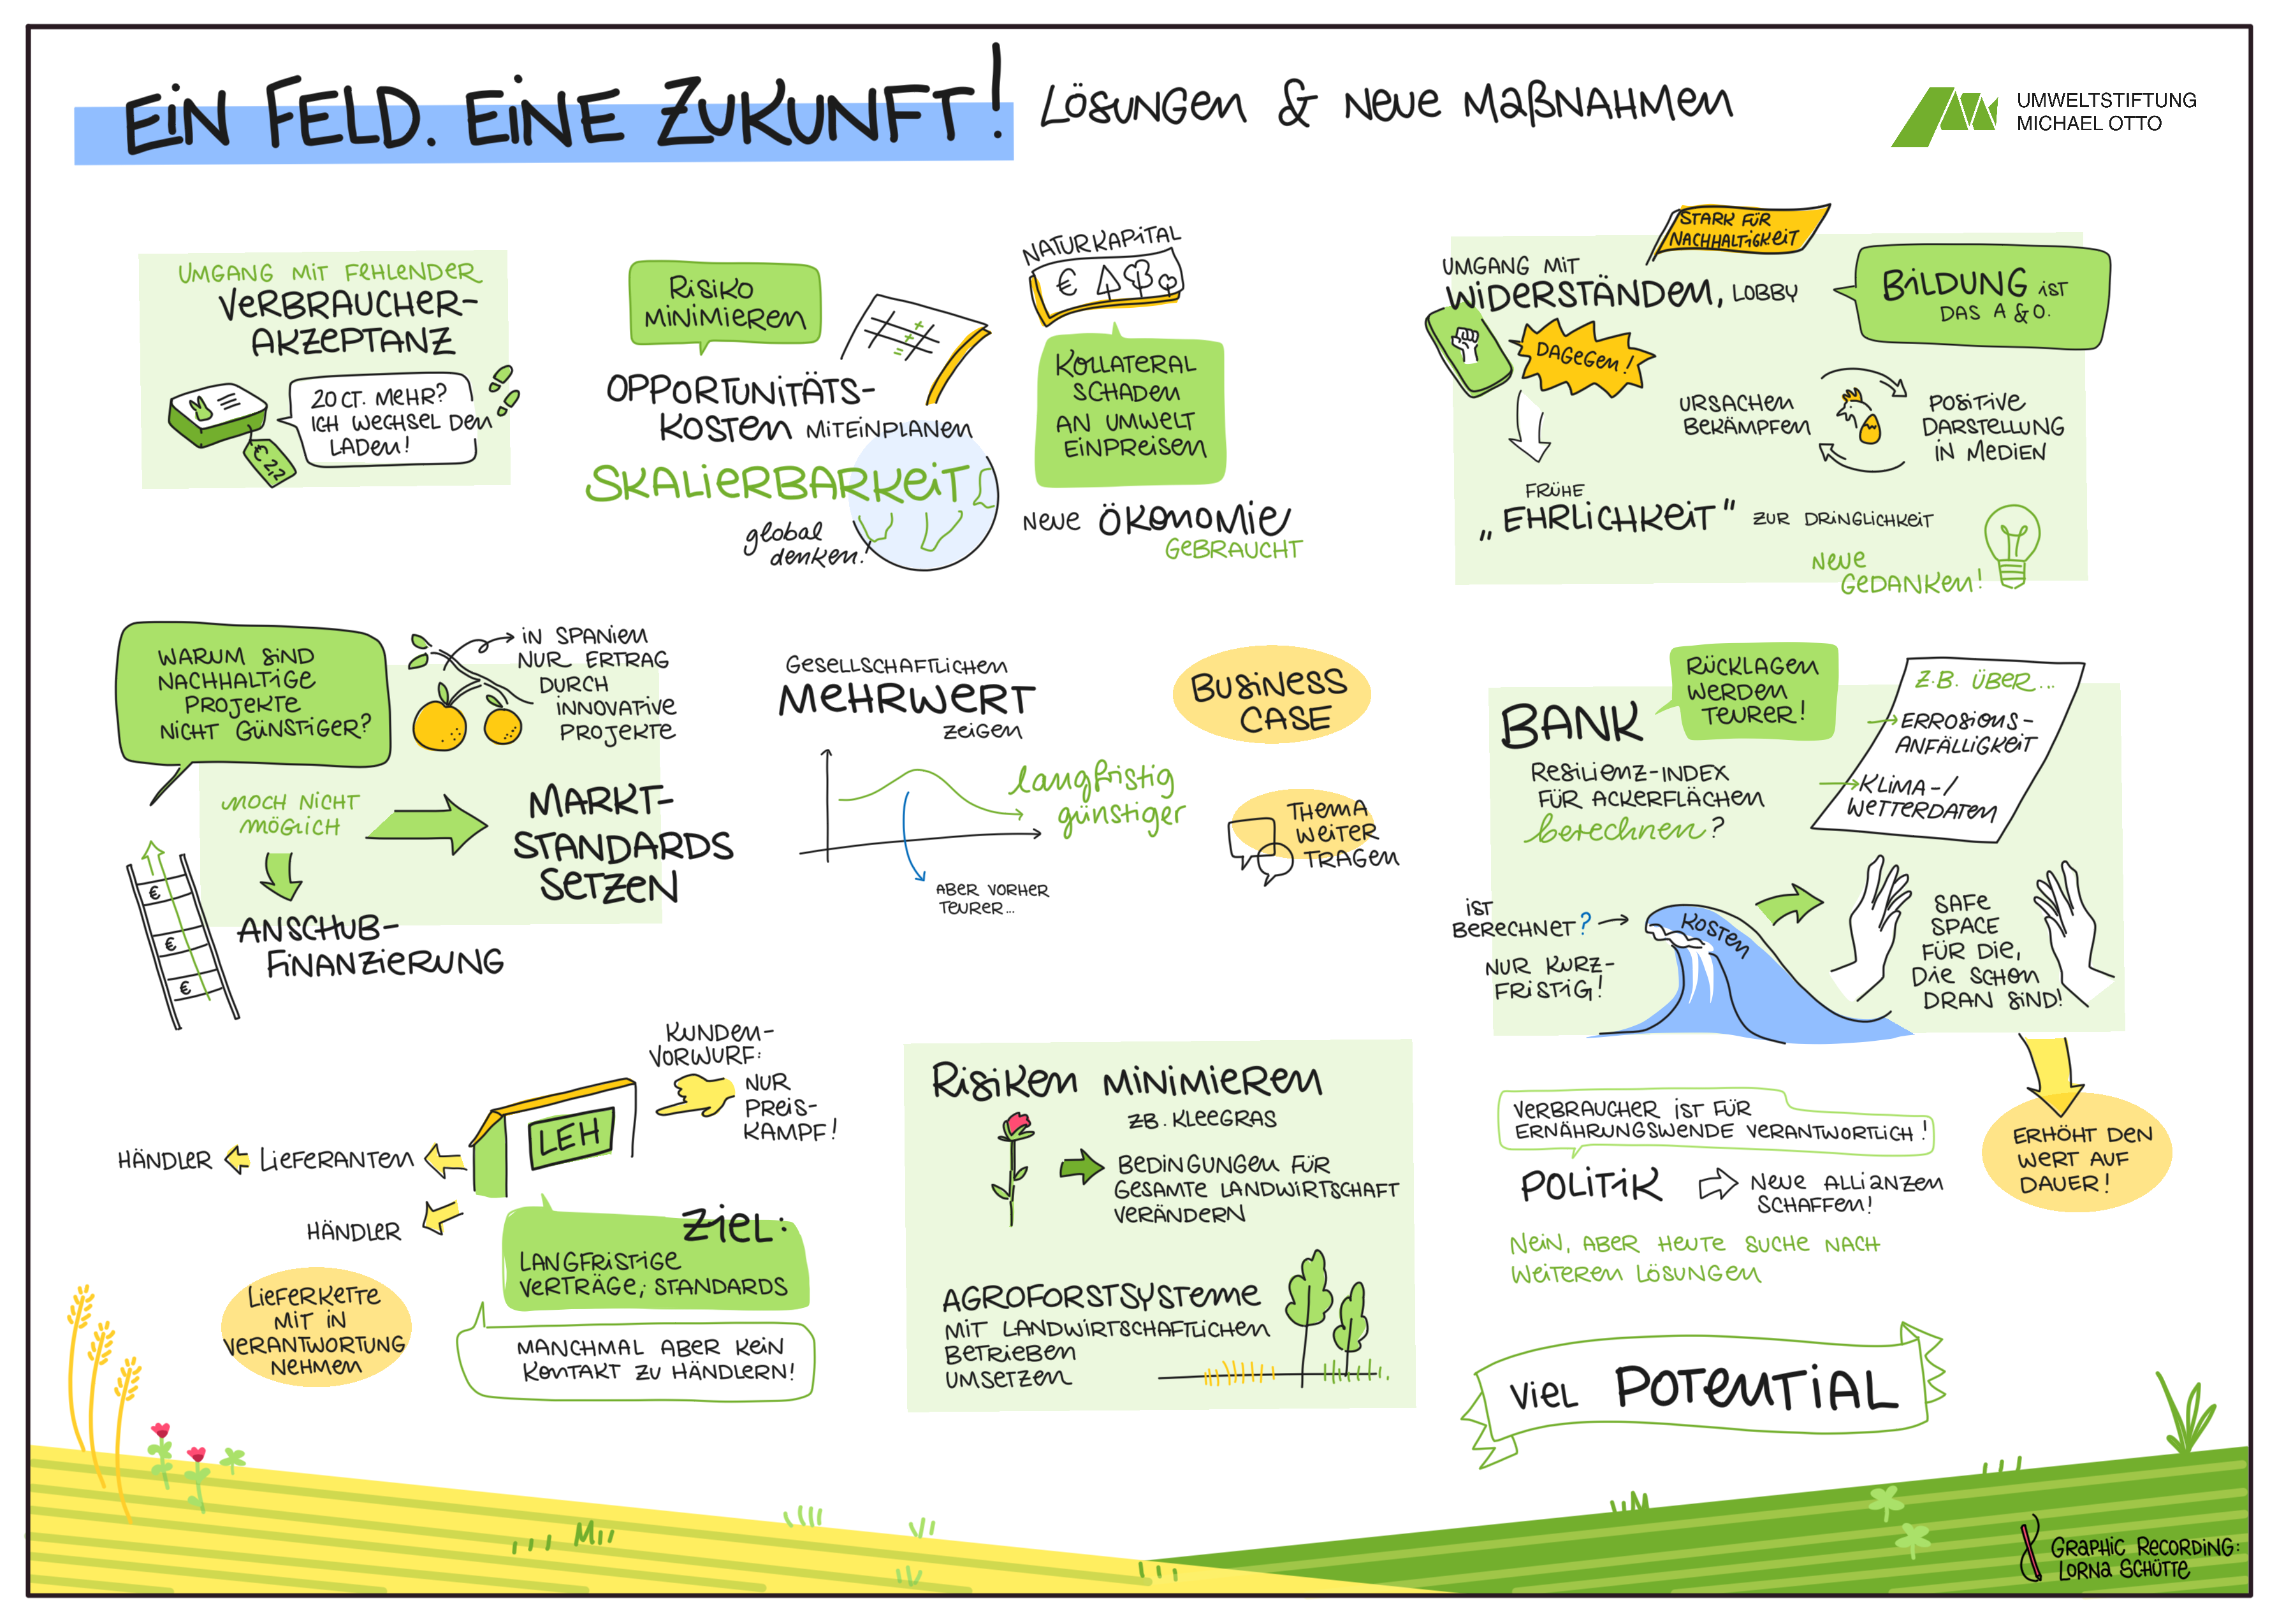 EIN FELD. EINE ZUKUNFT!
LÖSUNGEN & NEUE MAßNAHMEN
UMWELTSTIFTUNG
MICHAEL OTTO
UMGANG MIT FEHLENDER
VERBRAUCHER-
AKZEPTANZ
20 CT. MEHR?
ICH WECHSEL DEN
LADEN!
€ 2,2
RISIKO
MINIMIEREN
OPPORTUNITÄTS-
KOSTEN MITEINPLANEN
SKALIERBARKEIT
global
denken!
NATURKAPITAL
€
KOLLATERAL
SCHADEN
AN UMWELT
EINPREISEN
NEUE ÖKONOMIE
GEBRAUCHT
STARK FÜR
NACHHALTIGKEIT
UMGANG MIT
WIDERSTÄNDEN, LOBBY
DAGEGEN!
BILDUNG IST
DAS A & O.
URSACHEN
BEKÄMPFEN
POSITIVE
DARSTELLUNG
IN MEDIEN
FRÜHE
„EHRLICHKEIT" ZUR DRINGLICHKEIT
NEUE
GEDANKEN!
WARUM SIND
NACHHALTIGE
PROJEKTE
NICHT GÜNSTIGER?
IN SPANIEN
NUR ERTRAG
DURCH
INNOVATIVE
PROJEKTE
NOCH NICHT
MÖGLICH
MARKT-
STANDARDS
SETZEN
€
€
€
ANSCHUB-
FINANZIERUNG
GESELLSCHAFTLICHEN
MEHRWERT
ZEIGEN
langfristig
günstiger
ABER VORHER
TEURER...
BUSINESS
CASE
THEMA
WEITER
TRAGEN
BANK
RÜCKLAGEN
WERDEN
TEURER!
Z.B. ÜBER...
ERROSIONS-
ANFÄLLIGKEIT
KLIMA-/
WETTERDATEN
RESILIENZ-INDEX
FÜR ACKERFLÄCHEN
berechnen?
IST
BERECHNET?
KOSTEN
NUR KURZ-
FRISTIG!
SAFE
SPACE
FÜR DIE,
DIE SCHON
DRAN SIND!
ERHÖHT DEN
WERT AUF
DAUER!
KUNDEN-
VORWURF:
NUR
PREIS-
KAMPF!
LEH
HÄNDLER
LIEFERANTEN
HÄNDLER
ZIEL:
LANGFRISTIGE
VERTRÄGE; STANDARDS
LIEFERKETTE
MIT IN
VERANTWORTUNG
NEHMEN
MANCHMAL ABER KEIN
KONTAKT ZU HÄNDLERN!
RISIKEN MINIMIEREN
ZB. KLEEGRAS
BEDINGUNGEN FÜR
GESAMTE LANDWIRTSCHAFT
VERÄNDERN
AGROFORSTSYSTEME
MIT LANDWIRTSCHAFTLICHEN
BETRIEBEN
UMSETZEN
VERBRAUCHER IST FÜR
ERNÄHRUNGSWENDE VERANTWORTLICH!
POLITIK
NEUE ALLIANZEN
SCHAFFEN!
NEIN, ABER HEUTE SUCHE NACH
WEITEREN LÖSUNGEN
VIEL POTENTIAL
GRAPHIC RECORDING:
LORNA SCHÜTTE